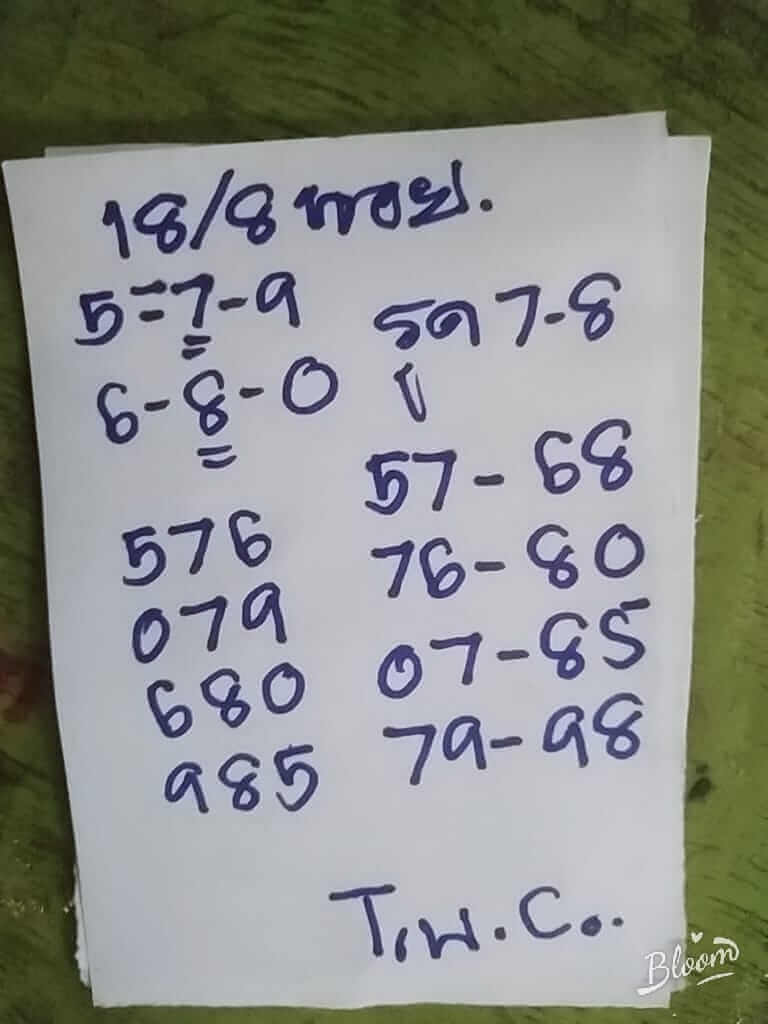 18/8 หวย.
5=7-9
6-8-0
รูด 7-8
57-68
76-80
07-85
79-98
576
079
680
985
T.พ.C..
Bloom